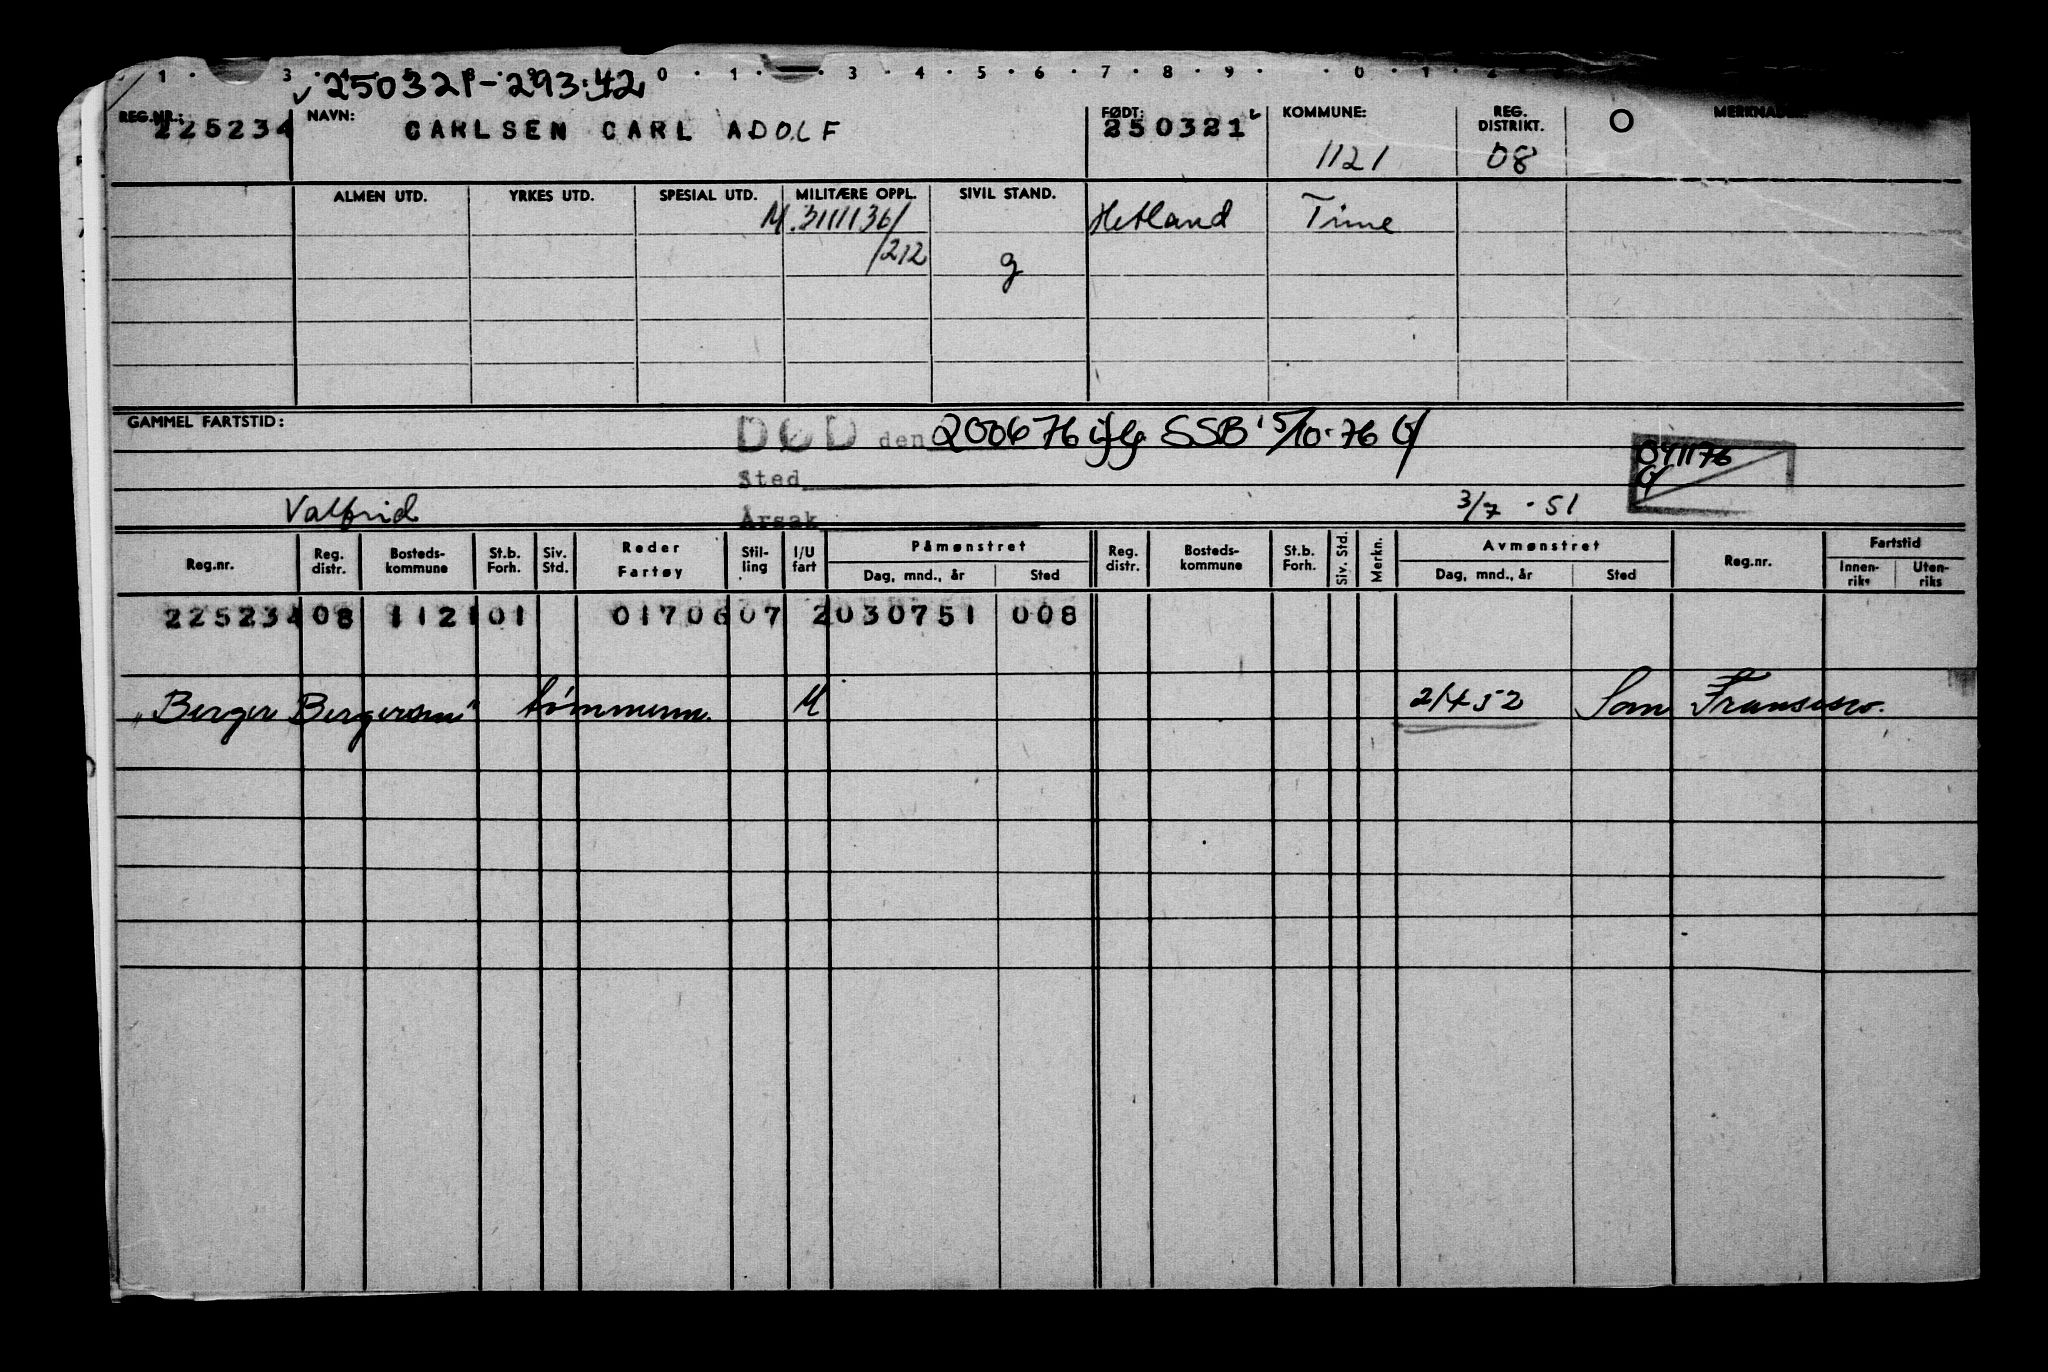 1 · 3 · 0 · 1 · 3 · 4 · 5 · 6 · 7 · 8 · 9 · 0 · 1
250321-293.42
REG.NR.: NAVN: FØDT: KOMMUNE: REG. DISTRIKT. MERKNADER:
225234 CARLSEN CARL ADOLF 250321 1121 08
ALMEN UTD. YRKES UTD. SPESIAL UTD. MILITÆRE OPPL. SIVIL STAND.
M.3111136/ Hetland Time
/212 g
GAMMEL FARTSTID: DØD den 200676 ifg SSB 5/10-76
041176
Sted
Valfrid 3/7 - 51
Årsak
Reg.nr. Reg. distr. Bosteds-kommune St.b. Forh. Siv. Std. Reder Fartøy Stil-ling I/U fart Påmønstret Dag, mnd., år Sted Reg. distr. Bosteds-kommune St.b. Forh. Siv. Std. Merkn. Avmønstret Dag, mnd., år Sted Reg.nr. Fartstid Innen-riks Uten-riks
225234 08 1121 01 01706 07 2 030751 008
"Berger Bergersen" tømmerm. M 21452 San Fransisco.